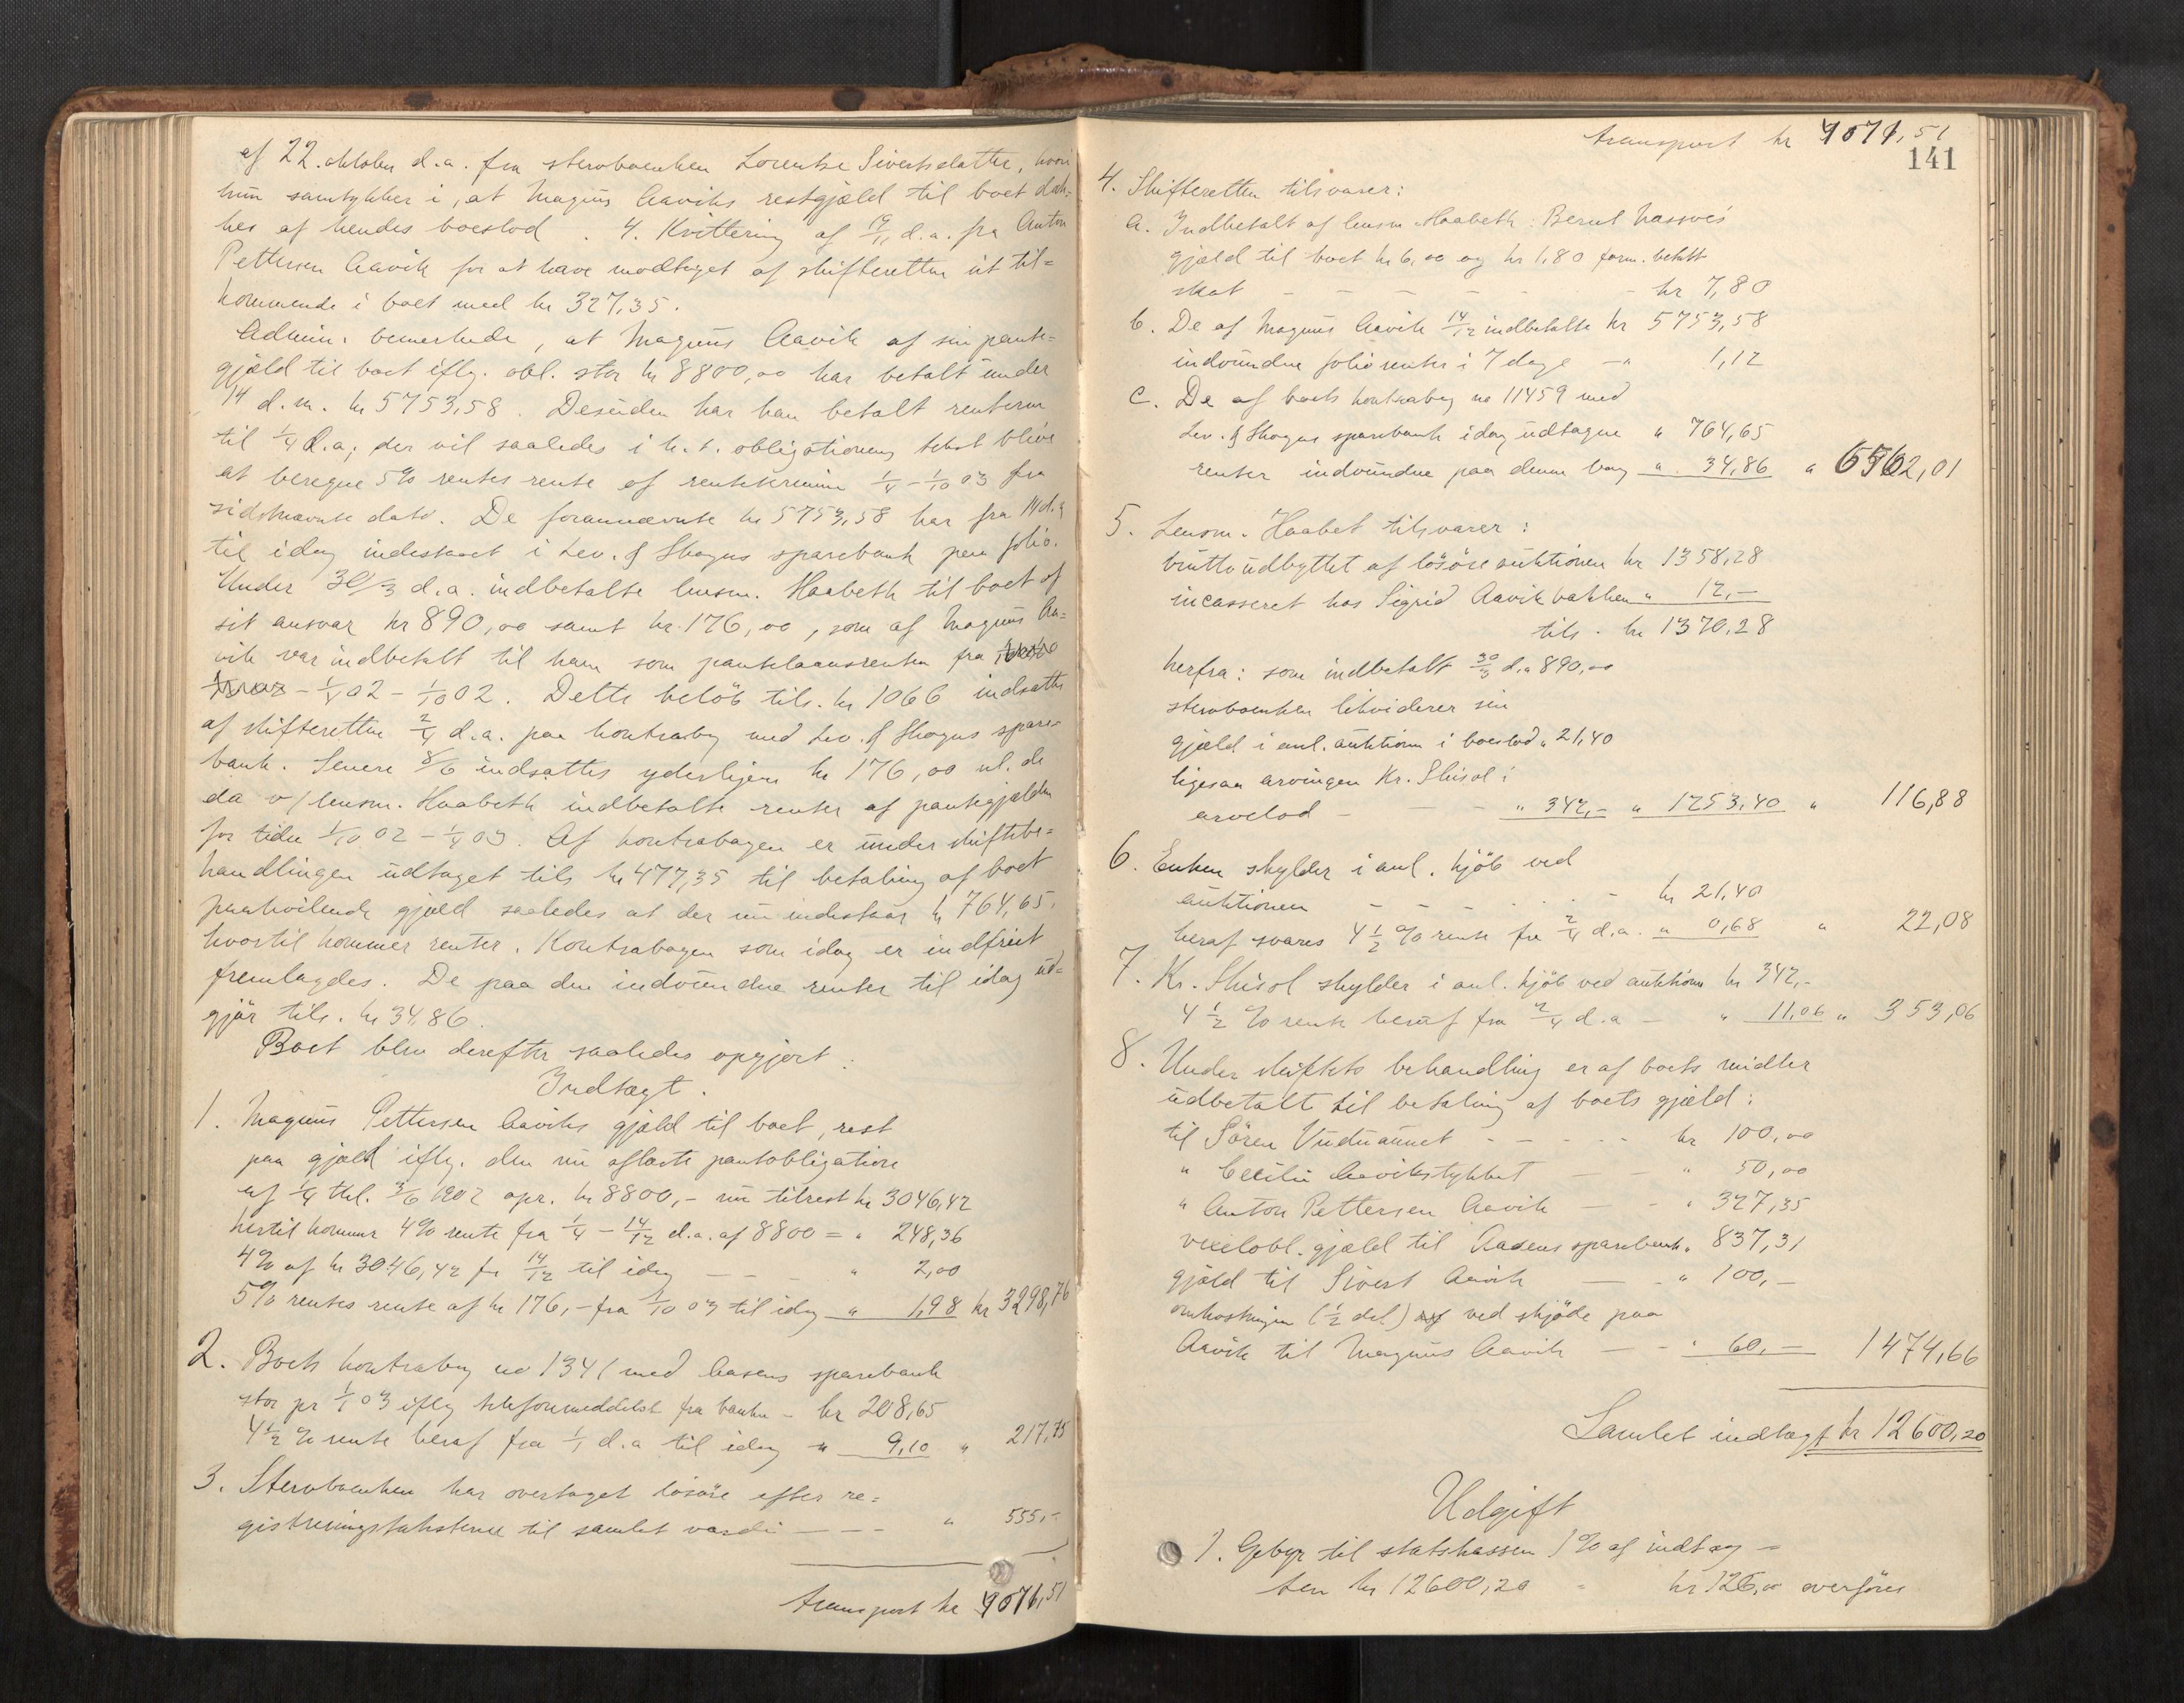 af 22. oktober d.a. fra stervboenken Lorentse Sivertsdatter, hvori
hun samtykker i, at Magnus Aaviks restgjæld til boet dæk=
kes af hendes boeslod. 4. Kvittering af 19/11 d.a. fra Anton
Pettersen Aavik for at have modtaget af skifteretten sit til=
kommende i boet med kr 327,35.
Admin. bemerkede, at Magnus Aavik af sin pante=
gjæld til boet iflg. obl. stor kr 8800,00 har betalt under
14 d.m. kr 5753,58. Desuden har han betalt renterne
til 1/4 d.a; der vil saaledes i h.t. obligationens tekst blive
at beregne 5% rentes rente af rentetermin 1/4 - 1/10 03 fra
sidstnævnte dato. De forannævnte kr 5753,58 har fra 14 d.s
til idag indestaaet i Lev. & Skogns sparebank paa folio.
Under 30/3 d.a. indbetalte lensm. Haabeth til boet af
sit ansvar kr 890,00 samt kr. 176,00, som af Magnus Aa=
vik var indbetalt til ham som pantelaansrenten fra
- 1/4 02 - 1/10 02. Dette beløb tils. kr 1066 indsattes
af skifteretten 2/4 d.a. paa kontrabog med Lev. & Skogns spare=
bank. Senere 8/6 indsattes yderligere kr 176,00 nl. de
da v/ lensm. Haabeth indbetalte renter af pantegjælden
for tiden 1/10 02 - 1/4 03. Af kontrabogen er under skiftebe=
handlingen udtaget tils kr 477,35 til betaling af boet
paahvilende gjæld saaledes at der nu indestaar kr 764,65,
hvortil kommer renter. Kontrabogen som idag er indfriet
fremlagdes. De paa den indvundne renter til idag ud=
gjør tils. kr 34,86.
Boet blev derefter saaledes opgjort:
Indtægt.
1. Magnus Pettersen Aaviks gjæld til boet, rest
paa gjæld iflg. den nu aflæste pantobligation
af 1/4 thl. 3/6 1902 opr. kr 8800,- nu tilrest kr 3046,42
hertil kommer 4% rente fra 1/4 - 14/12 d.a. af 8800 = " 248,36
4% af kr 3046,42 fr 14/12 til idag — — " 2,00
5% rentes rente af kr 176,- fra 1/10 03 til idag " 1,98 kr 3298,76
2. Boets kontrabog no 1341 med Aasens sparebank
stor pr 1/1 03 iflg telefonmeddelelse fra banken - kr 208,65
4 1/2 % rente heraf fra 1/1 d.a til idag " 9,10 " 217,75
3. Stervboenken har overtaget løsøre efter re=
gistreringstaksterne til samlet værdi — — — " 555,-
transport kr 4071,51
transport kr 4071,51
141
4. Skifteretten tilsvarer:
a. Indbetalt af lensm. Haabeth: Bernt Nassves
gjæld til boet kr 6,00 og kr 1,80 form. betalt
skat - - - - - kr 7,80
b. De af Magnus Aavik 14/12 indbetalte kr 5753,58
indvundne foliorenter i 7 dage — " 1,12
c. De af boets kontrabog no 11459 med
Lev. & Skogns sparebank idag udtagne " 764,65
renter indvundne paa denne bog " 34,86 " 6562,01
5. Lensm. Haabet tilsvarer:
bruttoudbyttet af løsøreauktionen kr 1358,28
incasseret hos Sigrid Aavikbakken " 12,—
tils. kr 1370,28
herfra: som indbetalt 30/3 d.a 890,00
stervboenken likviderer sin
gjæld i anl. auktionen i boeslod " 21,40
ligesaa arvingen Kr. Skisol i
arvelod - — - " 342,— " 1253,40 " 116,88
6. Enken skylder i anl. kjøb ved
auktionen - - - - - - kr 21,40
heraf svares 4 1/2 % rente fra 2/4 d.a. " 0,68 " 22,08
7. Kr. Skisol skylder i anl. kjøb ved auktion kr 342,-
4 1/2 % rente heraf fra 2/4 d.a — " 11,06 " 353,06
8. Under skiftets behandling er af boets midler
udbetalt til betaling af boets gjæld:
til Sören Vuduaunet - - - - - kr 100,00
" Cecilie Aavikstykket — " 50,00
" Anton Pettersen Aavik — - " 327,35
vexelobl. gjæld til Aasens sparebank " 837,31
gjæld til Sivert Aavik — - " 100,—
omkostninger (1/2 del) ved skjøde paa
Aavik til Magnus Aavik — - " 60,— 1474,66
Samlet indtægt kr 12600,20
Udgift
1. Gebyr til statskassen 1% af indtæg=
ten kr 12600,20 " kr 126,00 overføres